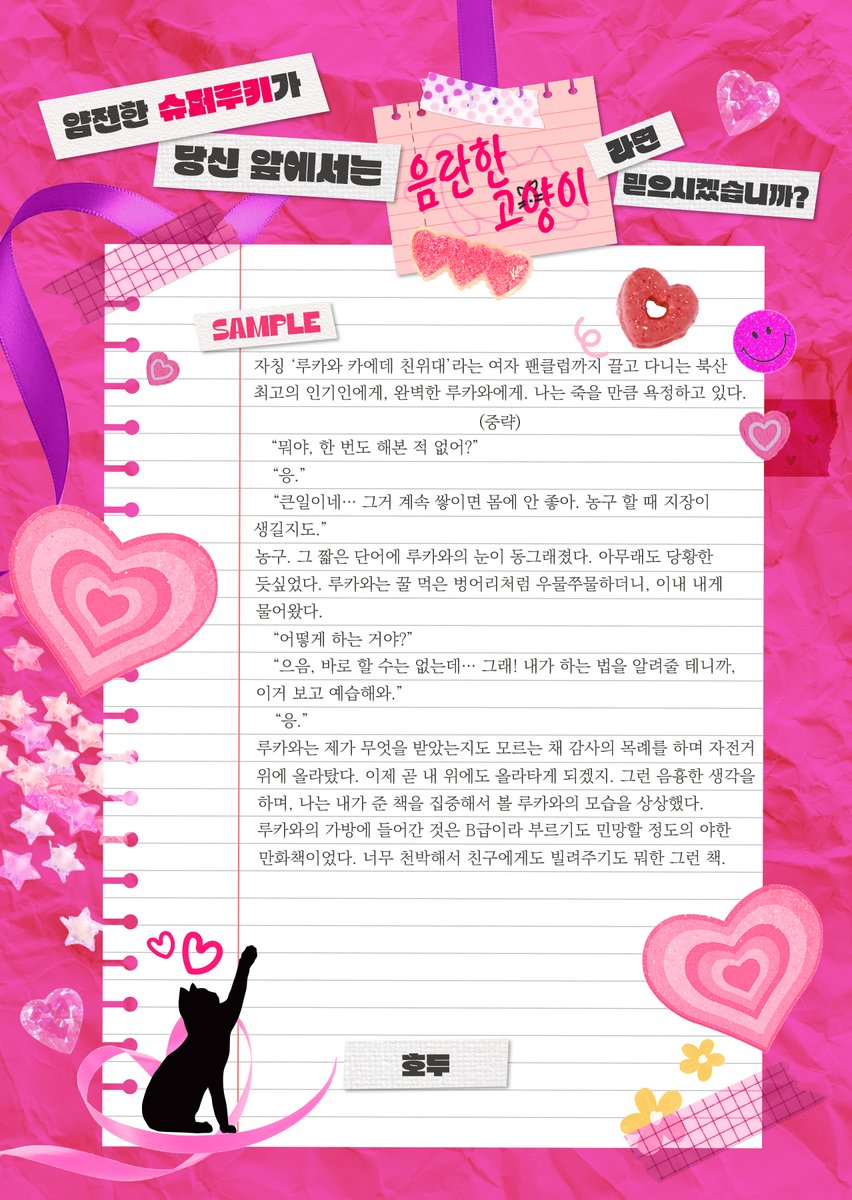 얌전한 슈퍼루키가
당신 앞에서는
음란한
고양이
라면
믿으시겠습니까?
SAMPLE
자칭 ‘루카와 카에데 친위대’라는 여자 팬클럽까지 끌고 다니는 북산
최고의 인기인에게, 완벽한 루카와에게. 나는 죽을 만큼 욕정하고 있다.
(중략)
“뭐야, 한 번도 해본 적 없어?”
“응.”
“큰일이네… 그거 계속 쌓이면 몸에 안 좋아. 농구 할 때 지장이
생길지도.”
농구. 그 짧은 단어에 루카와의 눈이 동그래졌다. 아무래도 당황한
듯싶었다. 루카와는 꿀 먹은 벙어리처럼 우물쭈물하더니, 이내 내게
물어왔다.
“어떻게 하는 거야?”
“으음, 바로 할 수는 없는데… 그래! 내가 하는 법을 알려줄 테니까,
이거 보고 예습해와.”
“응.”
루카와는 제가 무엇을 받았는지도 모르는 채 감사의 목례를 하며 자전거
위에 올라탔다. 이제 곧 내 위에도 올라타게 되겠지. 그런 음흉한 생각을
하며, 나는 내가 준 책을 집중해서 볼 루카와의 모습을 상상했다.
루카와의 가방에 들어간 것은 B급이라 부르기도 민망할 정도의 야한
만화책이었다. 너무 천박해서 친구에게도 빌려주기도 뭐한 그런 책.
호두